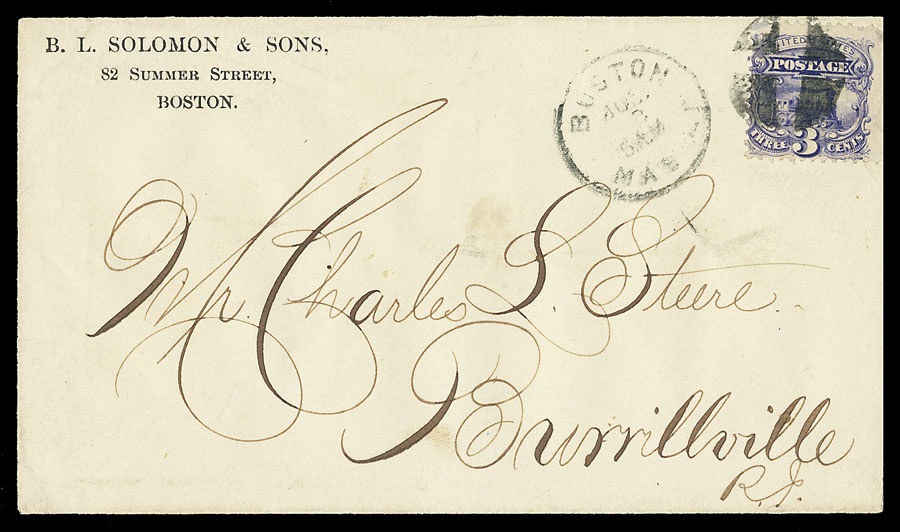 B. L. SOLOMON & SONS,
82 SUMMER STREET,
BOSTON.
BOSTON
MAS
UNITED STATES
POSTAGE
THREE 3 CENTS
Mr. Charles L. Steere.
Burrillville
R.I.